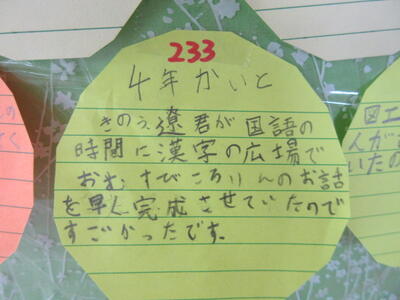 233
4年かいと
きのう遼君が国語の
時間に漢字の広場で
おむすびころりんのお話
を早く完成させていたので
すごかったです。
図工
んがさ
いたの
の
てく